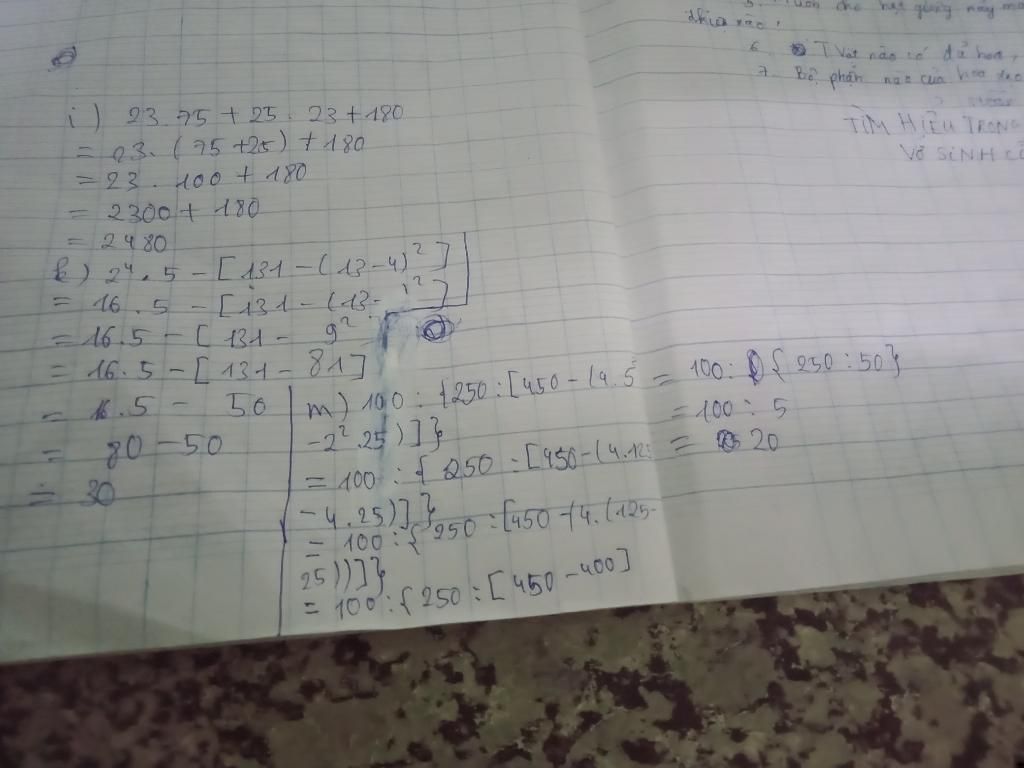 i) 23 75 + 25. 23 + 180
= 23. (75 + 25) + 180
= 23 . 100 + 180
= 2300 + 180
= 2480
k) 2⁴. 5 - [131 - (13 - 4)²]
= 16 . 5 - [131 - (13- )²]
= 16.5 - [ 131 - 9²
= 16.5 - [ 131 - 81]
= .5 - 50
= 80 - 50
= 30
m) 100 : {250 : [450 - (4.5
- 2².25)]}
= 100 : { 250 : [450 - (4.125
- 4.25)]}
= 100 : { 250 : [450 - (4.(125-
25))]}
= 100 : { 250 : [ 450 - 400]
= 100 : { 250 : 50}
= 100 : 5
= 20
6. T Vật nào có
7. Bộ phận nào của hoa
TÌM HIỂU TRONG
VÔ SINH